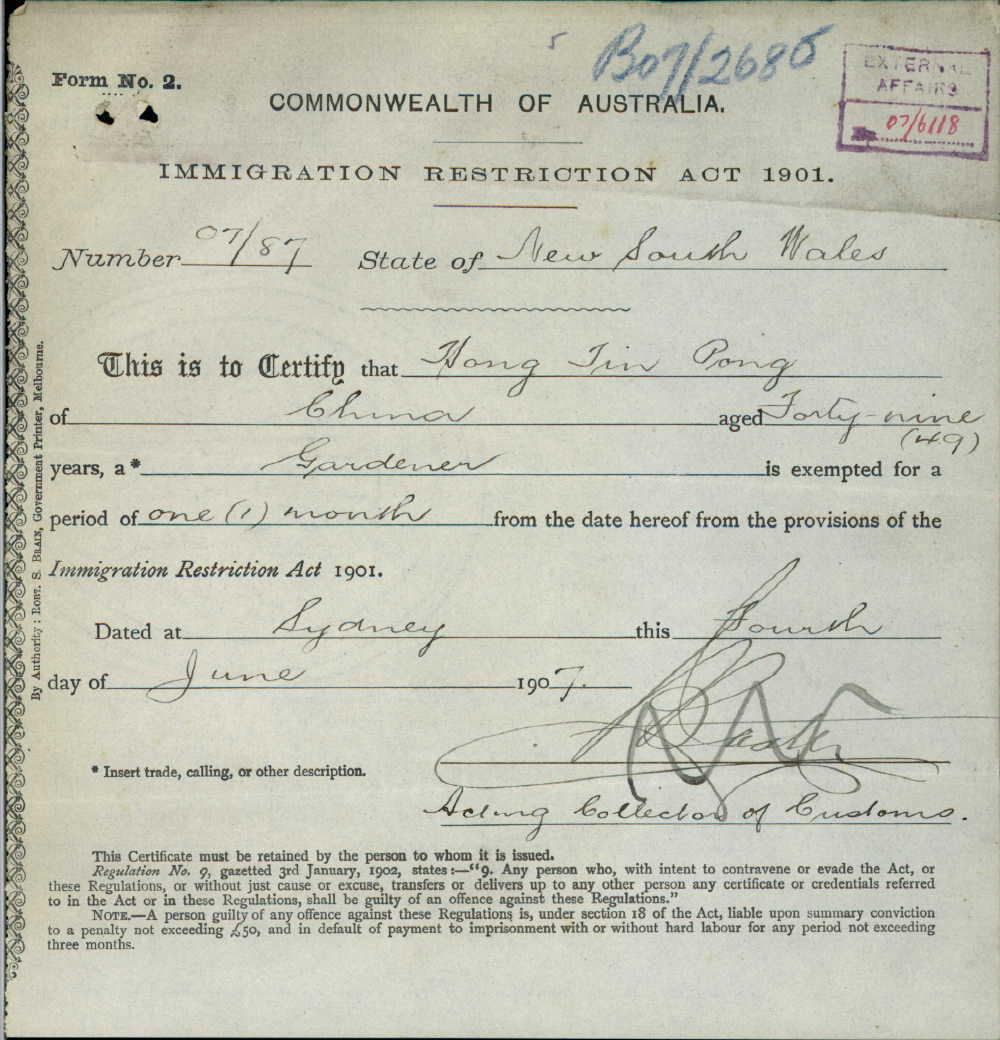 5
B07/2685
Form No. 2.
EXTERNAL
AFFAIRS
07/6118
COMMONWEALTH OF AUSTRALIA.
IMMIGRATION RESTRICTION ACT 1901.
Number 07/87 State of New South Wales
This is to Certify that Hong Tin Pong
of China aged Forty-nine
(49)
years, a* Gardener is exempted for a
period of one (1) month from the date hereof from the provisions of the
Immigration Restriction Act 1901.
Dated at Sydney this Fourth
day of June 1907.
* Insert trade, calling, or other description.
Acting Collector of Customs.
This Certificate must be retained by the person to whom it is issued.
Regulation No. 9, gazetted 3rd January, 1902, states:—"9. Any person who, with intent to contravene or evade the Act, or
these Regulations, or without just cause or excuse, transfers or delivers up to any other person any certificate or credentials referred
to in the Act or in these Regulations, shall be guilty of an offence against these Regulations."
NOTE.—A person guilty of any offence against these Regulations is, under section 18 of the Act, liable upon summary conviction
to a penalty not exceeding £50, and in default of payment to imprisonment with or without hard labour for any period not exceeding
three months.
By Authority: ROBT. S. BRAIN, Government Printer, Melbourne.